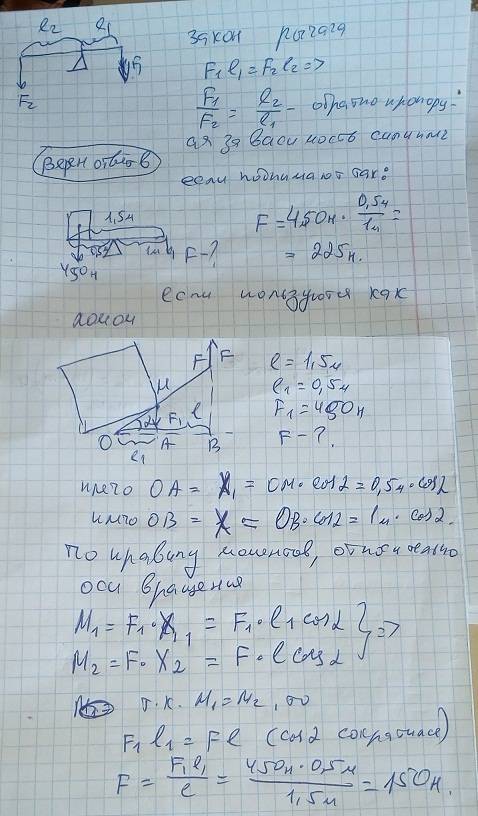 l2 l1
F1
F2
закон рычага
F1l1 = F2l2 =>
F1/F2 = l2/l1 - обратно пропорци-
ая зависимость силы и
Верен ответ в
если поднимают так:
1,5м
0,5м 1м
450н
F - ?
F = 450н · 0,5м/1м =
= 225н.
если пользуются как
ломом
M F F
α F1 l
O A B
l1
l = 1,5м
l1 = 0,5м
F1 = 450н
F - ?
плечо OA = X1 = OM · cosα = 0,5м · cosα
плечо OB = X = OB · cosα = 1м · cosα.
По правилу моментов, относительно
оси вращения
M1 = F1 · X1 = F1 · l1 cosα
M2 = F · X2 = F · l cosα } =>
т.к. M1 = M2, то
F1l1 = Fl (cosα сократился)
F = F1l1/l = 450н · 0,5м/1,5м = 150н.